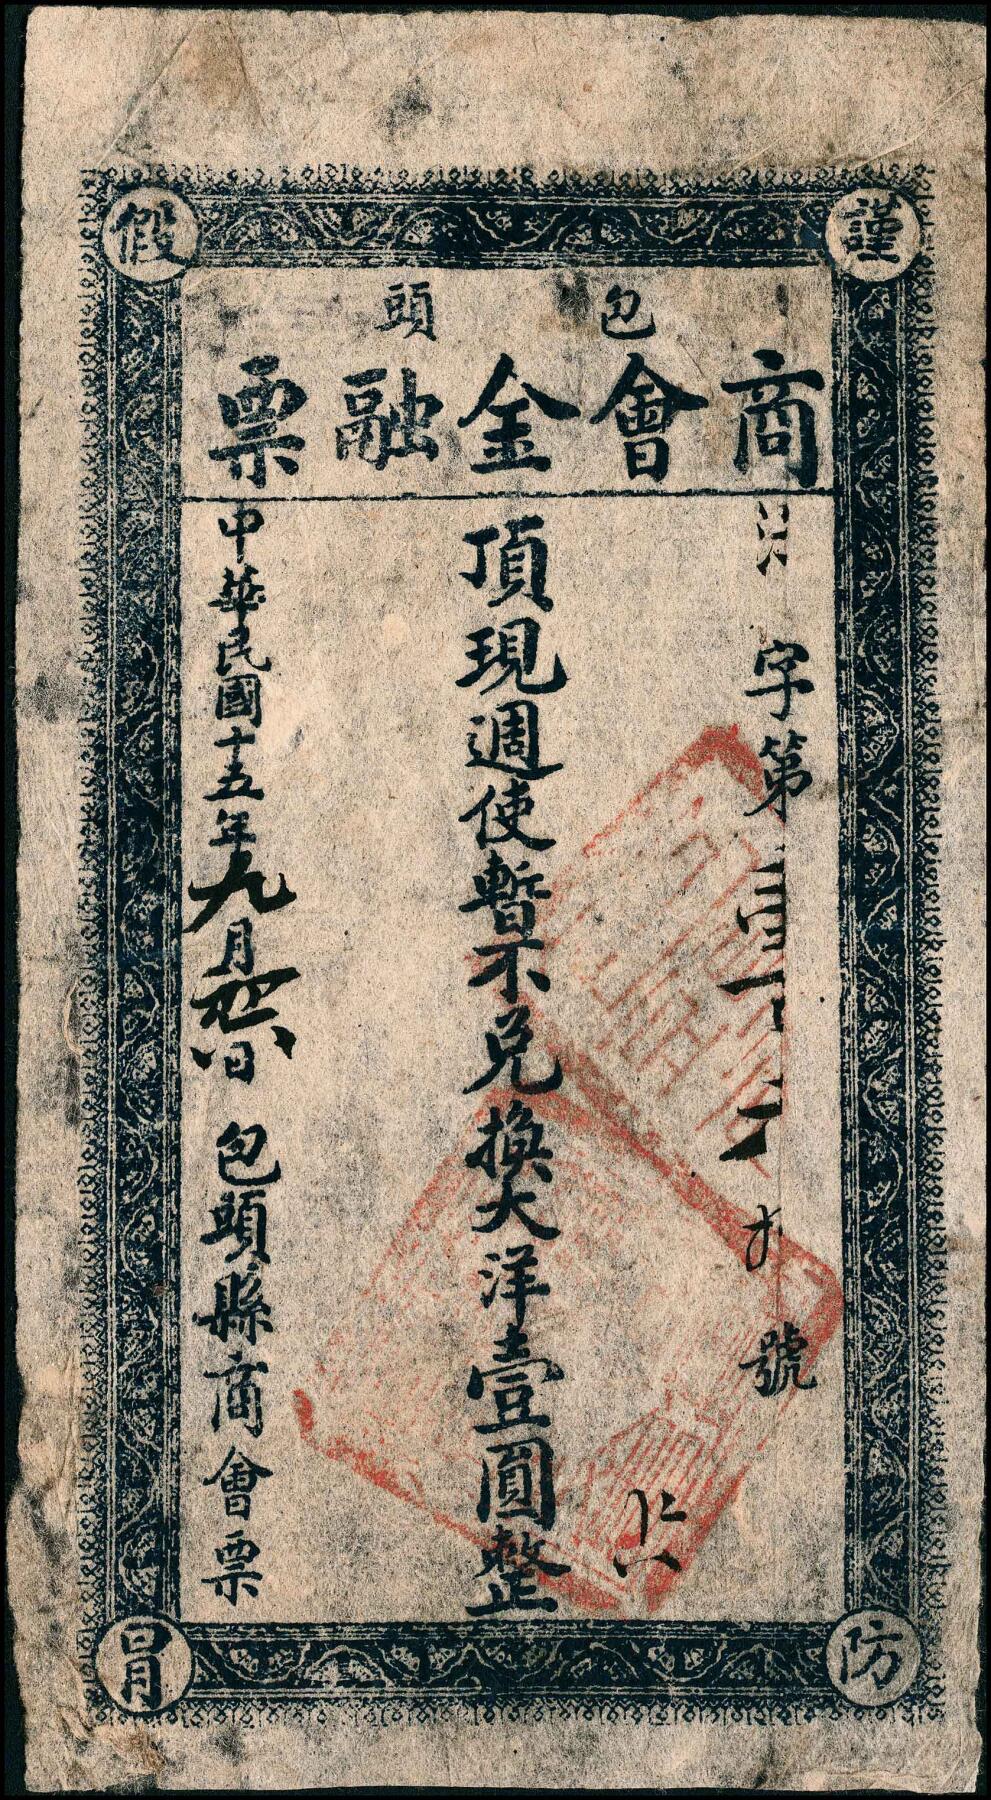 謹防假冒
包頭
商會金融票
字第壹千號
頂現週使暫不兌換大洋壹圓整
中華民國十五年九月廿八日 包頭縣商會票